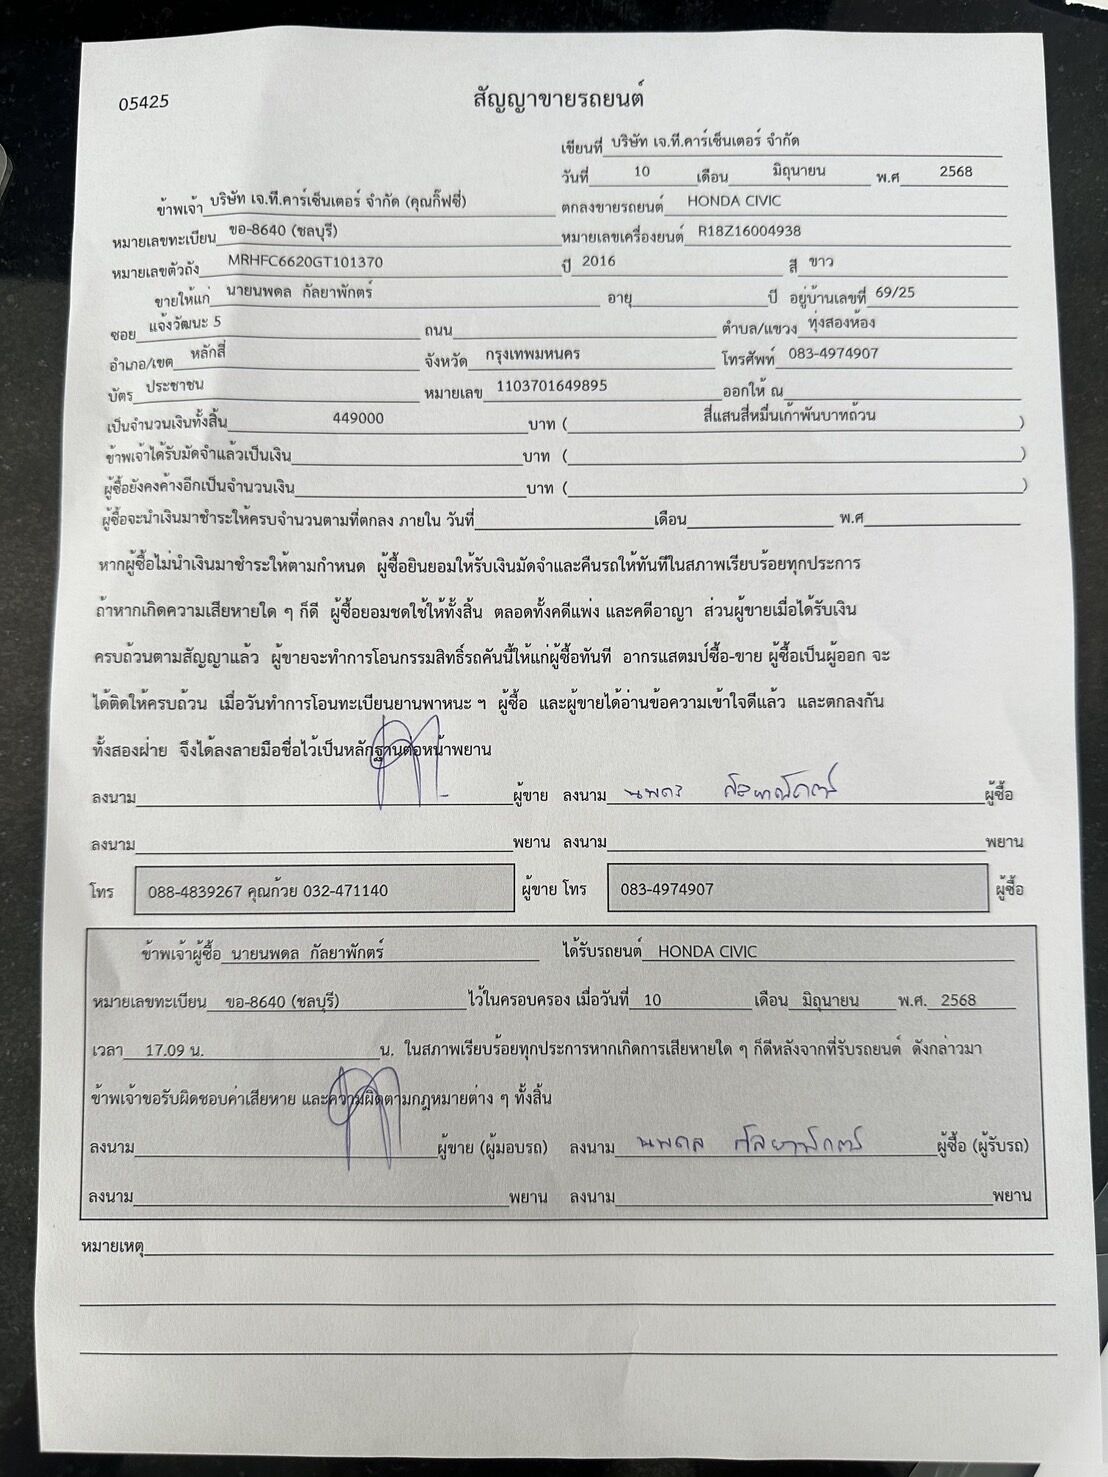 05425
สัญญาขายรถยนต์
เขียนที่ บริษัท เจ.ที.คาร์เซ็นเตอร์ จำกัด
วันที่ 10 เดือน มิถุนายน พ.ศ 2568
ข้าพเจ้า บริษัท เจ.ที.คาร์เซ็นเตอร์ จำกัด (คุณกิ๊ฟซี่) ตกลงขายรถยนต์ HONDA CIVIC
หมายเลขทะเบียน ขอ-8640 (ชลบุรี) หมายเลขเครื่องยนต์ R18Z16004938
หมายเลขตัวถัง MRHFC6620GT101370 ปี 2016 สี ขาว
ขายให้แก่ นายนพดล กัลยาพักตร์ อายุ ปี อยู่บ้านเลขที่ 69/25
ซอย แจ้งวัฒนะ 5 ถนน ตำบล/แขวง ทุ่งสองห้อง
อำเภอ/เขต หลักสี่ จังหวัด กรุงเทพมหนคร โทรศัพท์ 083-4974907
บัตร ประชาชน หมายเลข 1103701649895 ออกให้ ณ
เป็นจำนวนเงินทั้งสิ้น 449000 บาท ( สี่แสนสี่หมื่นเก้าพันบาทถ้วน )
ข้าพเจ้าได้รับมัดจำแล้วเป็นเงิน บาท ( )
ผู้ซื้อยังคงค้างอีกเป็นจำนวนเงิน บาท ( )
ผู้ซื้อจะนำเงินมาชำระให้ครบจำนวนตามที่ตกลง ภายใน วันที่ เดือน พ.ศ
หากผู้ซื้อไม่นำเงินมาชำระให้ตามกำหนด ผู้ซื้อยินยอมให้รับเงินมัดจำและคืนรถให้ทันทีในสภาพเรียบร้อยทุกประการ
ถ้าหากเกิดความเสียหายใด ๆ ก็ดี ผู้ซื้อยอมชดใช้ให้ทั้งสิ้น ตลอดทั้งคดีแพ่ง และคดีอาญา ส่วนผู้ขายเมื่อได้รับเงิน
ครบถ้วนตามสัญญาแล้ว ผู้ขายจะทำการโอนกรรมสิทธิ์รถคันนี้ให้แก่ผู้ซื้อทันที อากรแสตมป์ซื้อ-ขาย ผู้ซื้อเป็นผู้ออก จะ
ได้ติดให้ครบถ้วน เมื่อวันทำการโอนทะเบียนยานพาหนะ ฯ ผู้ซื้อ และผู้ขายได้อ่านข้อความเข้าใจดีแล้ว และตกลงกัน
ทั้งสองฝ่าย จึงได้ลงลายมือชื่อไว้เป็นหลักฐานต่อหน้าพยาน
ลงนาม ผู้ขาย ลงนาม นพดล กัลยาพักตร์ ผู้ซื้อ
ลงนาม พยาน ลงนาม พยาน
โทร 088-4839267 คุณก้วย 032-471140 ผู้ขาย โทร 083-4974907 ผู้ซื้อ
ข้าพเจ้าผู้ซื้อ นายนพดล กัลยาพักตร์ ได้รับรถยนต์ HONDA CIVIC
หมายเลขทะเบียน ขอ-8640 (ชลบุรี) ไว้ในครอบครอง เมื่อวันที่ 10 เดือน มิถุนายน พ.ศ. 2568
เวลา 17.09 น. น. ในสภาพเรียบร้อยทุกประการหากเกิดการเสียหายใด ๆ ก็ดีหลังจากที่รับรถยนต์ ดังกล่าวมา
ข้าพเจ้าขอรับผิดชอบค่าเสียหาย และความผิดตามกฎหมายต่าง ๆ ทั้งสิ้น
ลงนาม ผู้ขาย (ผู้มอบรถ) ลงนาม นพดล กัลยาพักตร์ ผู้ซื้อ (ผู้รับรถ)
ลงนาม พยาน ลงนาม พยาน
หมายเหตุ